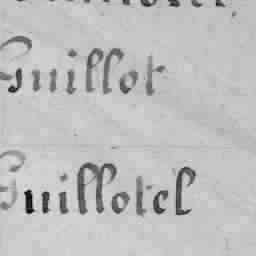 Guillot
Guillotel